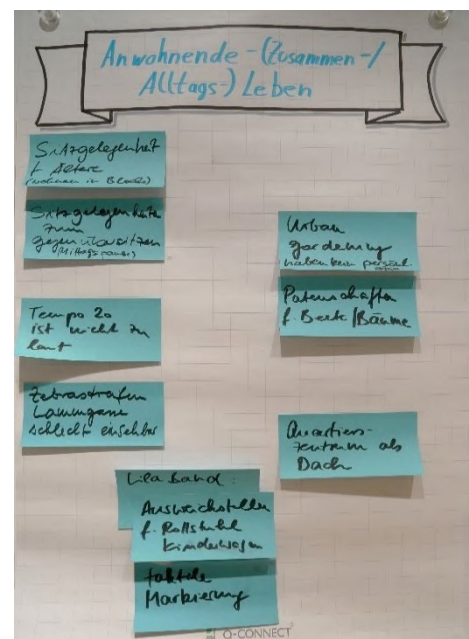 Anwohnende-(Zusammen-/
Alltags-) Leben
Sitzgelegenheit
f. Ältere
(wohnen im Block)
Sitzgelegenheiten
zum
gegenübersitzen
(Mittagspause)
Tempo 20
ist nicht zu
laut
Zebrastreifen
Lammgasse
schlecht einsehbar
Urban
gardening
haben kein
Patenschaften
f. Beete/Bäume
Quartiers-
zentrum als
Dach
Lila Band:
Ausweichstellen
f. Rollstuhl
Kinderwagen
taktile
Markierung
Q-CONNECT